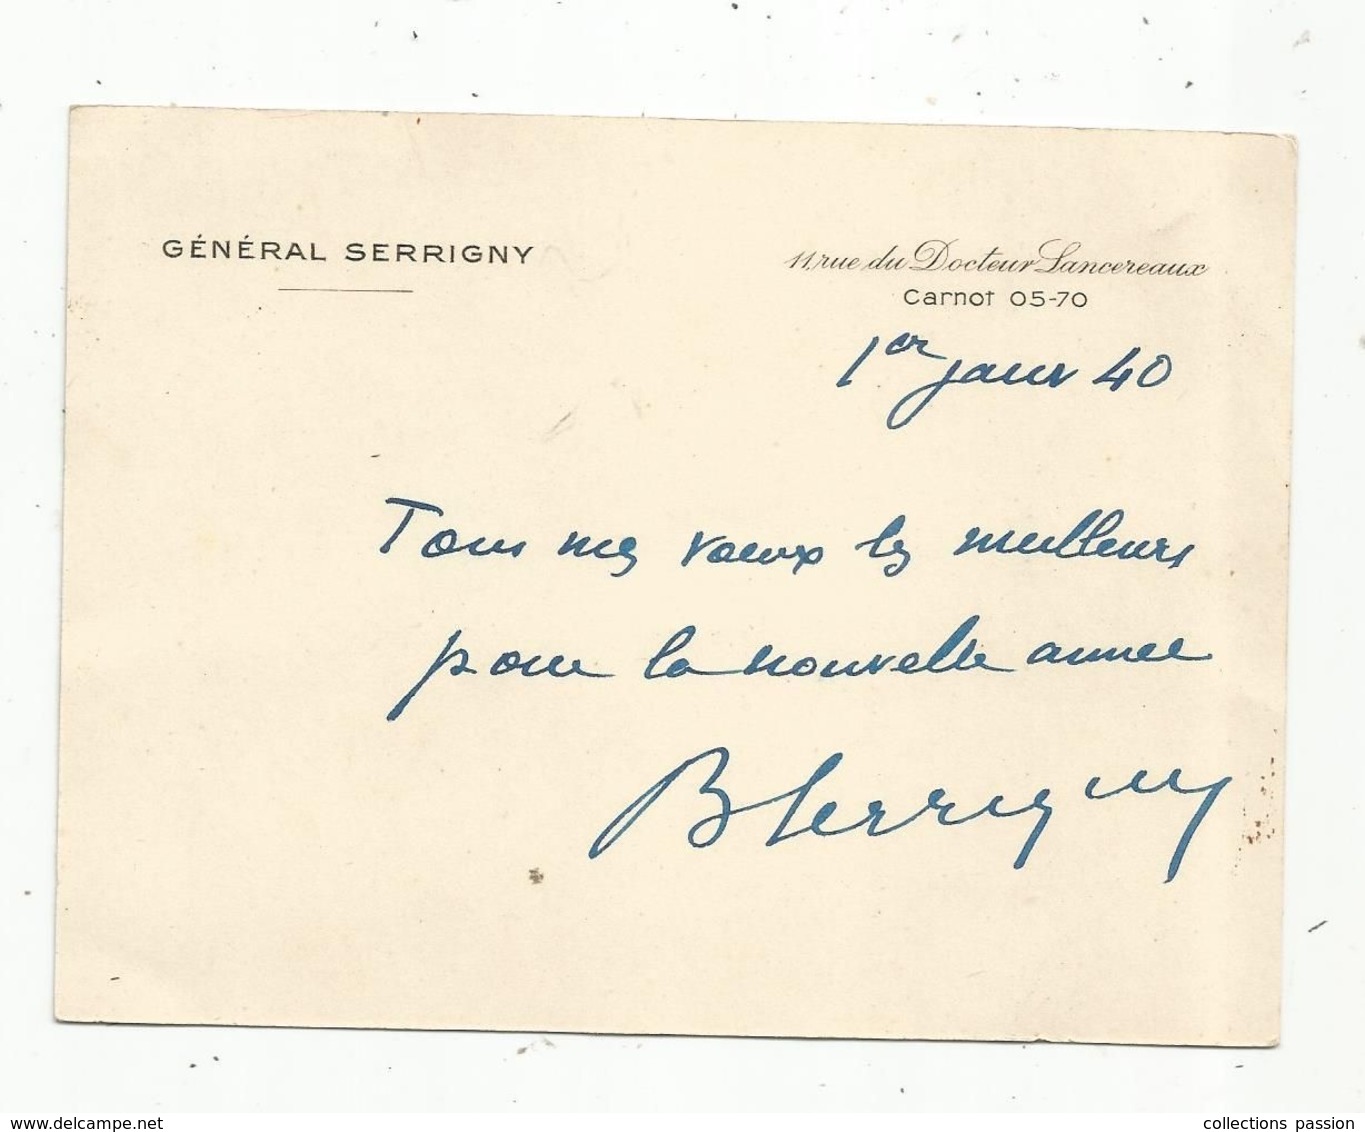 GÉNÉRAL SERRIGNY
11, rue du Docteur Lancereaux
Carnot 05-70
1er janv 40
Tous mes vœux les meilleurs
pour la nouvelle année
B Serrigny
www.delcampe.net
collections passion